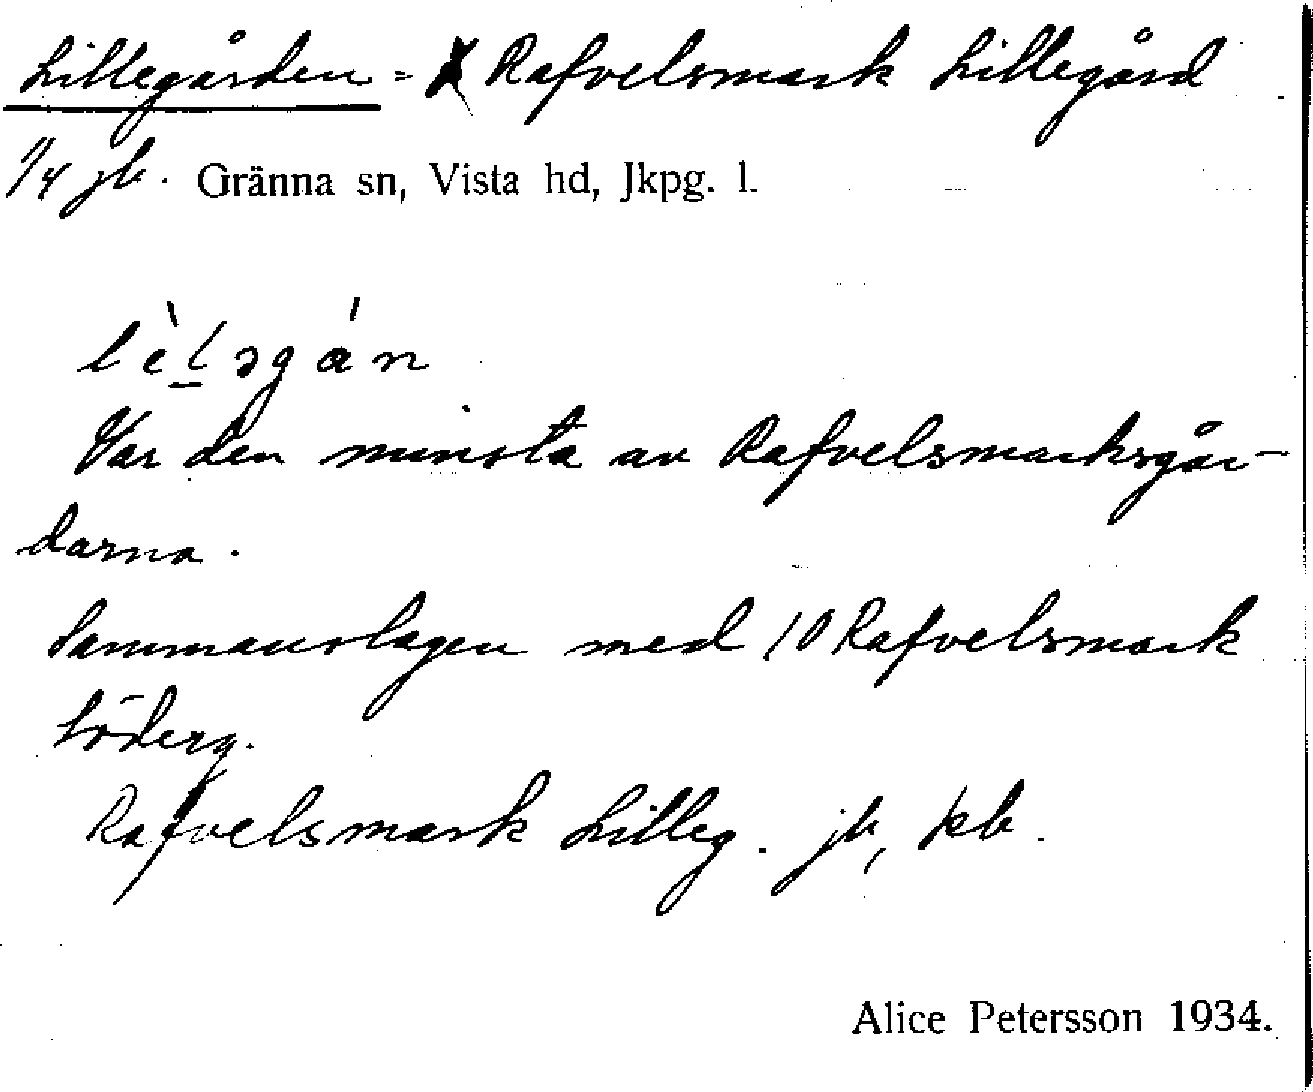 Lillegården = Rafvelsmark Lillegård
1/4 jb. Gränna sn, Vista hd, Jkpg. l.
lèləgán
Var den minsta av Rafvelsmarksgår-
darna.
Sammanslagen med 10 Rafvelsmark
Söderg.
Rafvelsmark Lilleg. jb, kb.
Alice Petersson 1934.